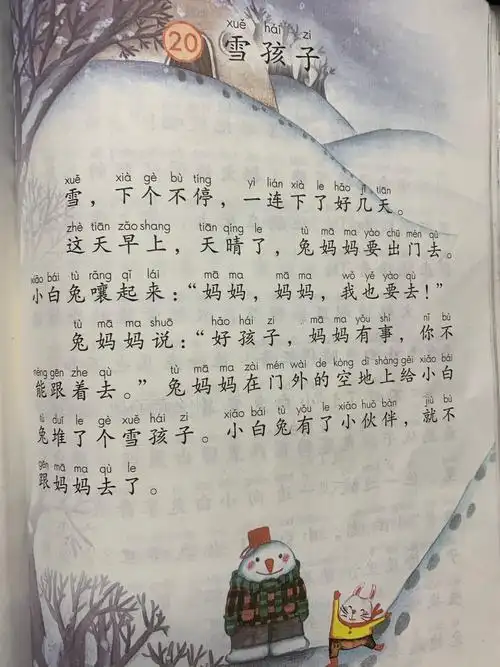 xuě hái zi
20 雪孩子
xuě xià gè bù tíng yì lián xià le hǎo jǐ tiān
雪，下个不停，一连下了好几天。
zhè tiān zǎo shang tiān qíng le tù mā ma yào chū mén qù
这天早上，天晴了，兔妈妈要出门去。
xiǎo bái tù rǎng qǐ lái mā ma mā ma wǒ yě yào qù
小白兔嚷起来：“妈妈，妈妈，我也要去！”
tù mā ma shuō hǎo hái zi mā ma yǒu shì nǐ bù
兔妈妈说：“好孩子，妈妈有事，你不
néng gēn zhe qù tù mā ma zài mén wài de kòng dì shang gěi xiǎo bái
能跟着去。”兔妈妈在门外的空地上给小白
tù duī le gè xuě hái zi xiǎo bái tù yǒu le xiǎo huǒ bàn jiù bù
兔堆了个雪孩子。小白兔有了小伙伴，就不
gēn mā ma qù le
跟妈妈去了。